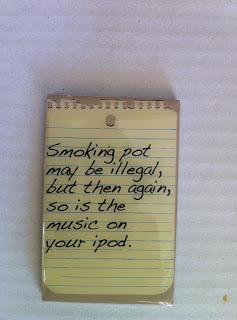 Smoking pot
may be illegal,
but then again,
so is the
music on
your ipod.